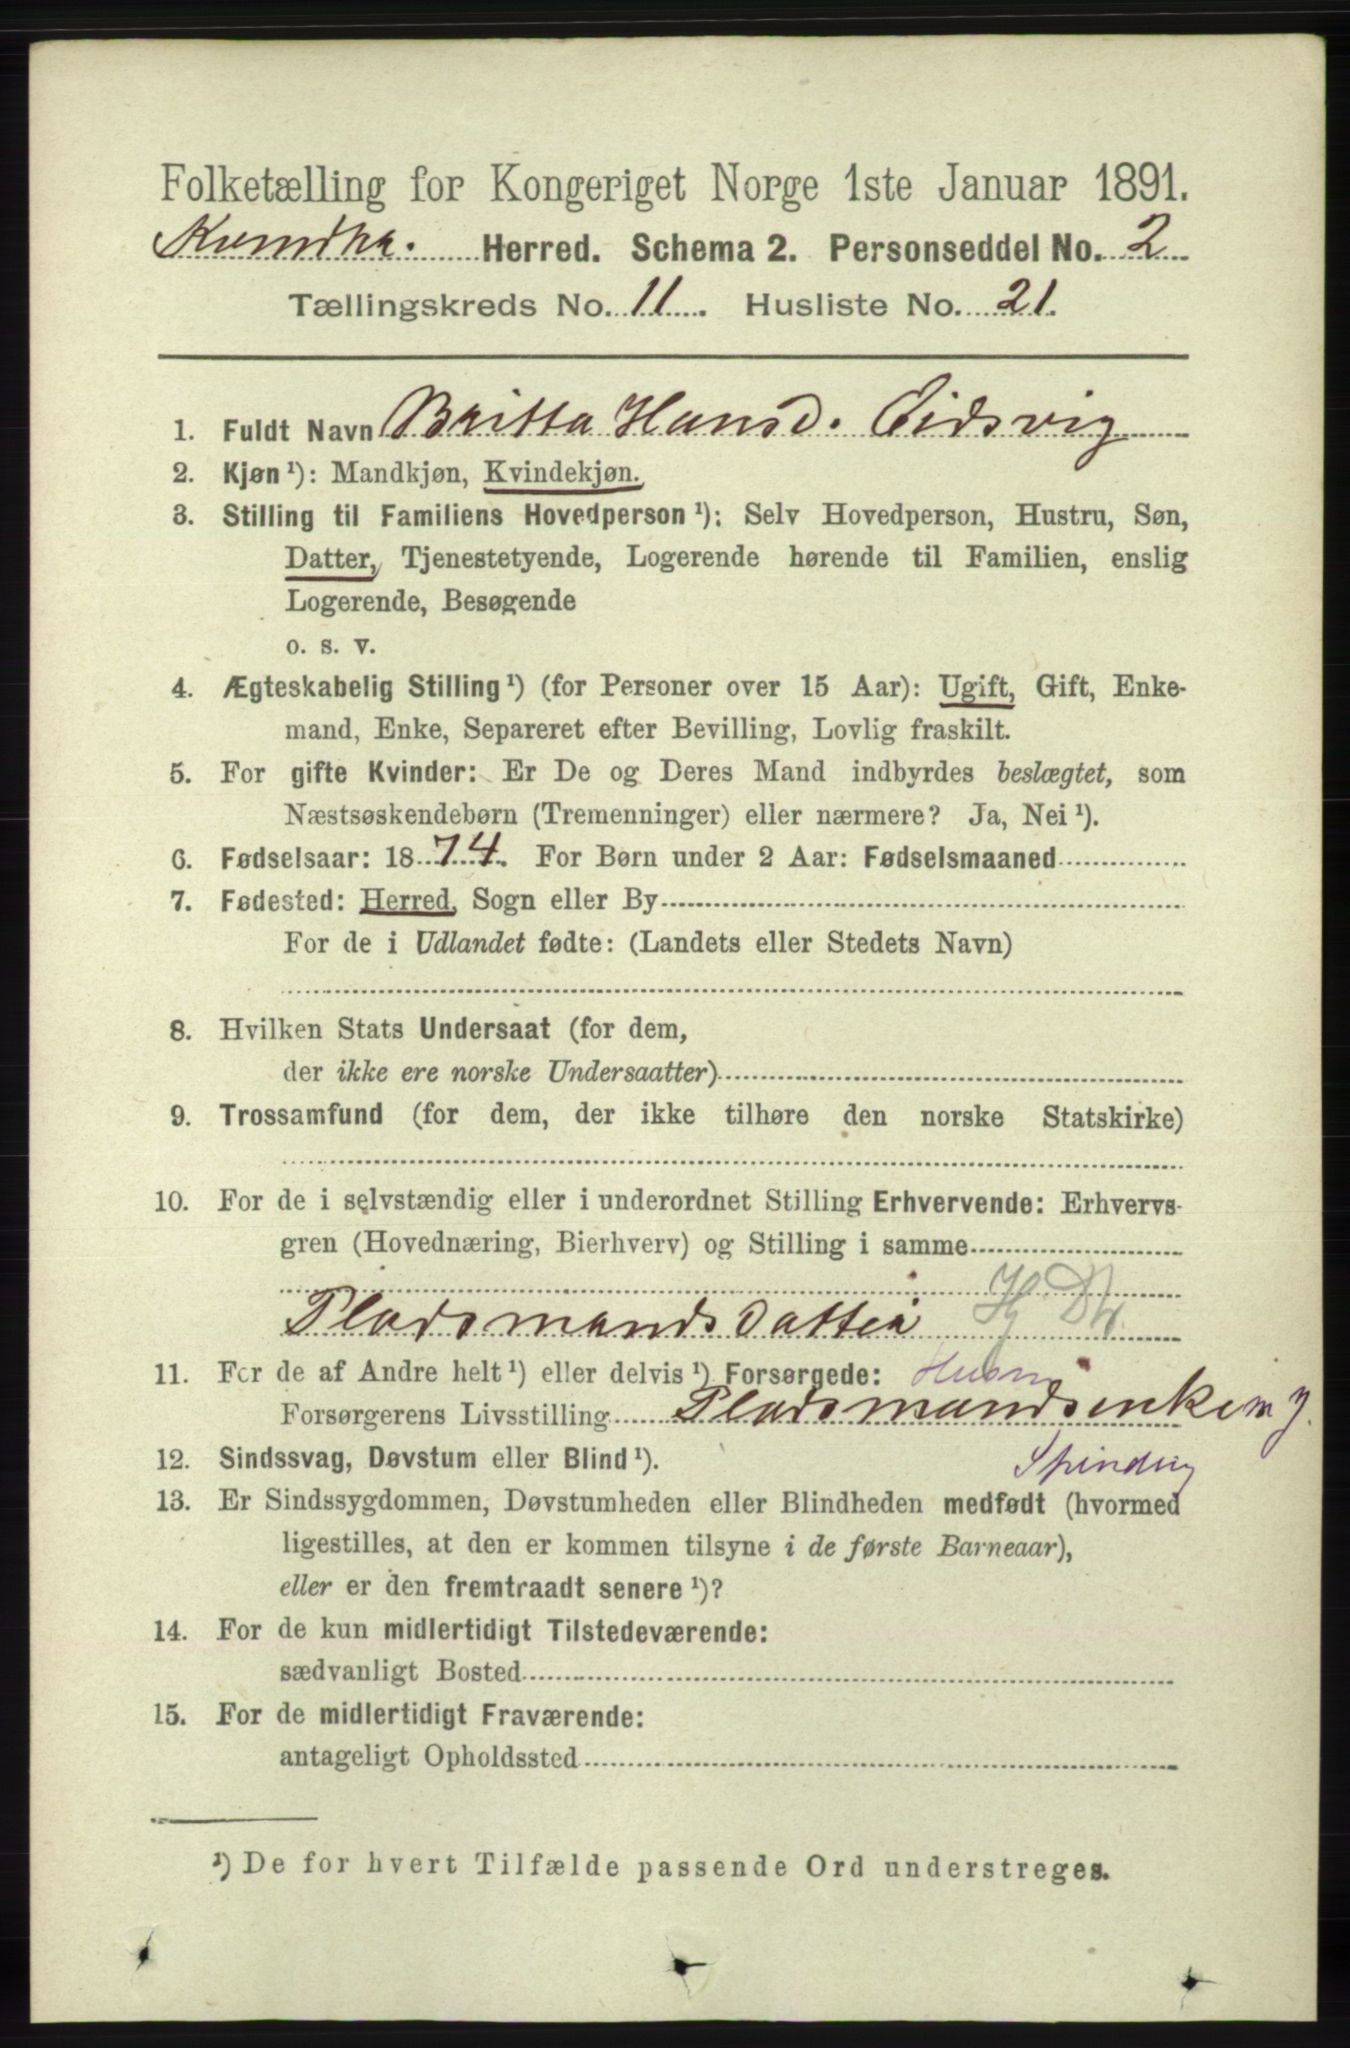 Folketælling for Kongeriget Norge 1ste Januar 1891.
Herred. Schema 2. Personseddel No. 2
Tællingskreds No. 11. Husliste No. 21.
1. Fuldt Navn Britta Hansd. Eidsvig
2. Kjøn ¹): Mandkjøn, Kvindekjøn.
3. Stilling til Familiens Hovedperson ¹): Selv Hovedperson, Hustru, Søn,
Datter, Tjenestetyende, Logerende hørende til Familien, enslig
Logerende, Besøgende
o. s. v.
4. Ægteskabelig Stilling ¹) (for Personer over 15 Aar): Ugift, Gift, Enke-
mand, Enke, Separeret efter Bevilling, Lovlig fraskilt.
5. For gifte Kvinder: Er De og Deres Mand indbyrdes beslægtet, som
Næstsøskendebørn (Tremenninger) eller nærmere? Ja, Nei ¹).
6. Fødselsaar: 1874. For Børn under 2 Aar: Fødselsmaaned
7. Fødested: Herred, Sogn eller By
For de i Udlandet fødte: (Landets eller Stedets Navn)
8. Hvilken Stats Undersaat (for dem,
der ikke ere norske Undersaatter)
9. Trossamfund (for dem, der ikke tilhøre den norske Statskirke)
10. For de i selvstændig eller i underordnet Stilling Erhvervende: Erhvervs-
gren (Hovednæring, Bierhverv) og Stilling i samme
Pladsmandsdatter
11. For de af Andre helt ¹) eller delvis ¹) Forsørgede:
Forsørgerens Livsstilling Pladsmandsenke
12. Sindssvag, Døvstum eller Blind ¹).
13. Er Sindssygdommen, Døvstumheden eller Blindheden medfødt (hvormed
ligestilles, at den er kommen tilsyne i de første Barneaar),
eller er den fremtraadt senere ¹)?
14. For de kun midlertidigt Tilstedeværende:
sædvanligt Bosted
15. For de midlertidigt Fraværende:
antageligt Opholdssted
¹) De for hvert Tilfælde passende Ord understreges.